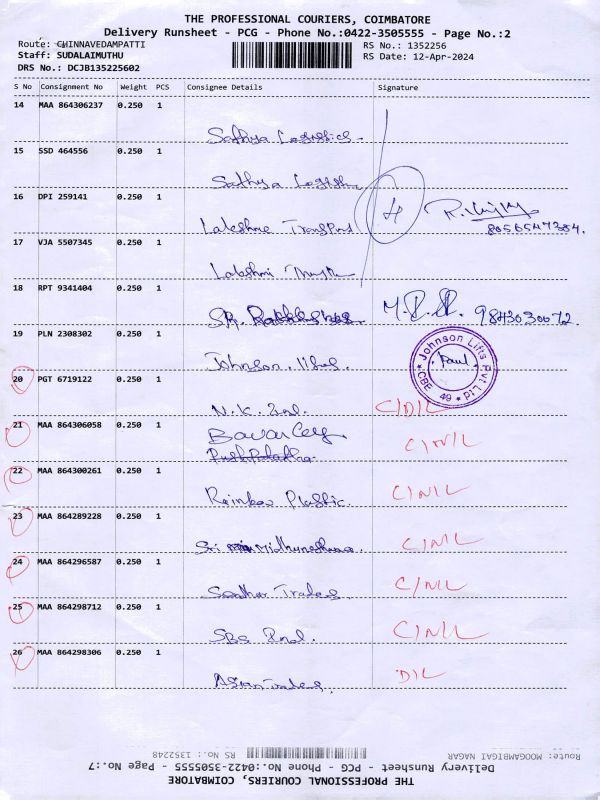 THE PROFESSIONAL COURIERS, COIMBATORE
Delivery Runsheet - PCG - Phone No.:0422-3505555 - Page No.:2
Route: CHINNAVEDAMPATTI
RS No.: 1352256
Staff: SUDALAIMUTHU
RS Date: 12-Apr-2024
DRS No.: DCJB135225602
S No Consignment No Weight PCS Consignee Details Signature
14 MAA 864306237 0.250 1
Sathya Logistics.
15 SSD 464556 0.250 1
Sathya
16 DPI 259141 0.250 1
Lakshmi
8056547384.
17 VJA 5507345 0.250 1
Lakshmi
18 RPT 9341404 0.250 1
SR.
9843030072.
19 PLN 2308302 0.250 1
Johnson
Johnson Lifts Pvt Ltd * CBE 49 *
Paul
20 PGT 6719122 0.250 1
N.K. Ind. C/D/L
21 MAA 864306058 0.250 1
C/N/L
22 MAA 864300261 0.250 1
Rainbow Plastic. C/N/L
23 MAA 864289228 0.250 1
Sri C/N/L
24 MAA 864296587 0.250 1
Traders C/N/L
25 MAA 864298712 0.250 1
SBS Ind. C/N/L
26 MAA 864298306 0.250 1
Asian Traders D/L
Route: MOOGAMBIGAI NAGAR
RS No.: 1352248
Delivery Runsheet - PCG - Phone No.:0422-3505555 - Page No.:7
THE PROFESSIONAL COURIERS, COIMBATORE